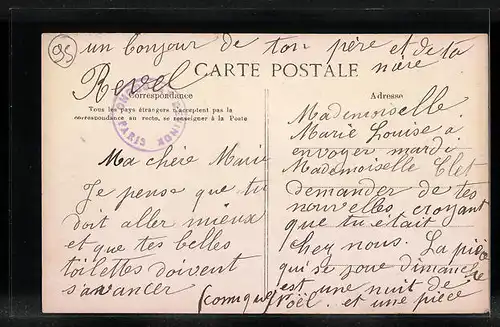 95
un bonjour de ton père et de ta
mère
Revel
CARTE POSTALE
Correspondance
Tous les pays étrangers n'acceptent pas la
correspondance au recto, se renseigner à la Poste
PARIS
Ma chère Marie
Je pense que tu
doit aller mieux
et que tes belles
toilettes doivent
s'avancer
(comique)
Adresse
Mademoiselle
Marie Louise a
envoyer mardi
Mademoiselle Clet
demander de tes
nouvelles croyant
que tu était
chez nous. La pièce
qui se joue dimanche
est une nuit de
Noël. et une pièce